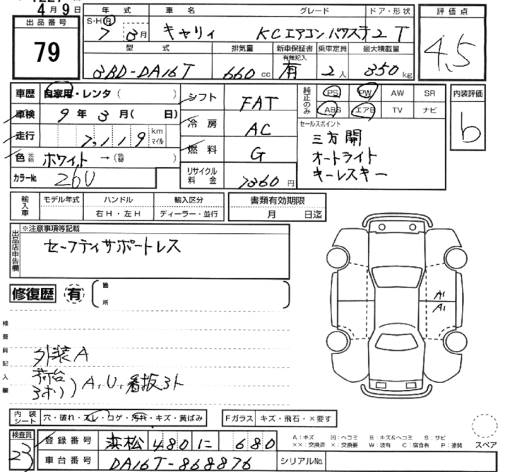 4月9日
出品番号
79
年式 車名 グレード ドア・形状
S・H・R 7年3月 キャリイ KCエアコンパワステ 2 T
型式 排気量 新車保証書 有無記入 乗車定員 最大積載量
3BD-DA16T 660cc 有 2人 350kg
評価点
4.5
車歴 自家用・レンタ( )
車検 9年3月( 日)
走行 7,119 km マイル
色 ホワイト →( )
カラーNo. 26U
シフト FAT
冷房 AC
燃料 G
リサイクル料金 7360円
純正のみ PS PW AW SR
ABS エアB TV ナビ
セールスポイント
三方開
オートライト
キーレスキー
内装評価
b
輸入車 モデル年式 ハンドル 右H・左H 輸入区分 ディーラー・並行
書類有効期限 月 日迄
出品店申告欄
※注意事項等記載
セーフティサポートレス
修復歴 有 箇所
検査員記入欄
外装A
荷台
アオリ)A,U,看板3ト
A1
A1
内装シート 穴・破れ・スレ・コゲ・汚れ・キズ・黄ばみ
Fガラス キズ・飛石・×要す
検査員
23
登録番号 浜松 480 に 680
車台番号 DA16T-868876
シリアルNo.
A:キズ U:ヘコミ B:キズ&ヘコミ S:サビ
××:交換済 ×:要交換 W:波有 C:腐食有 P:塗装
スペア